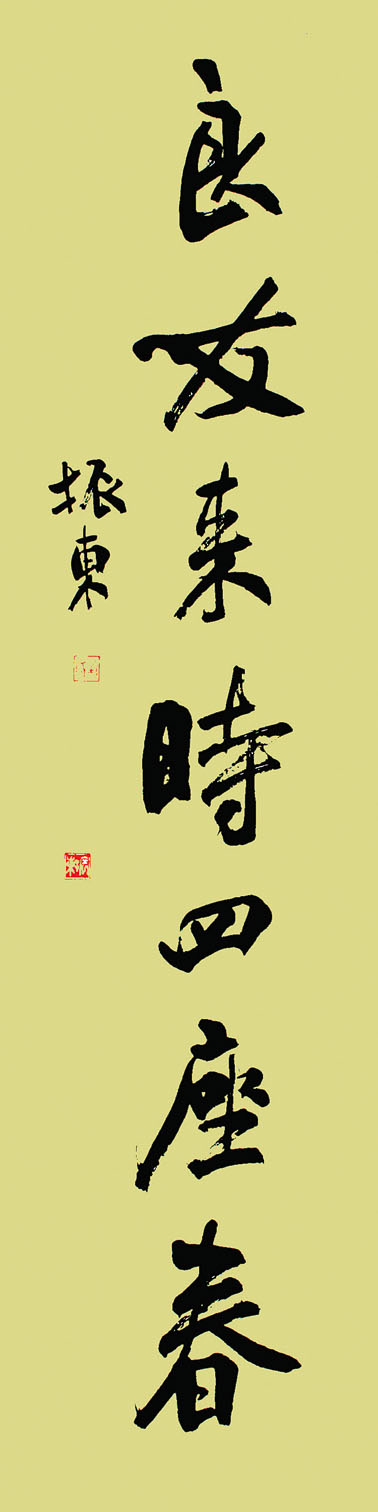 良友来時四座春
振東